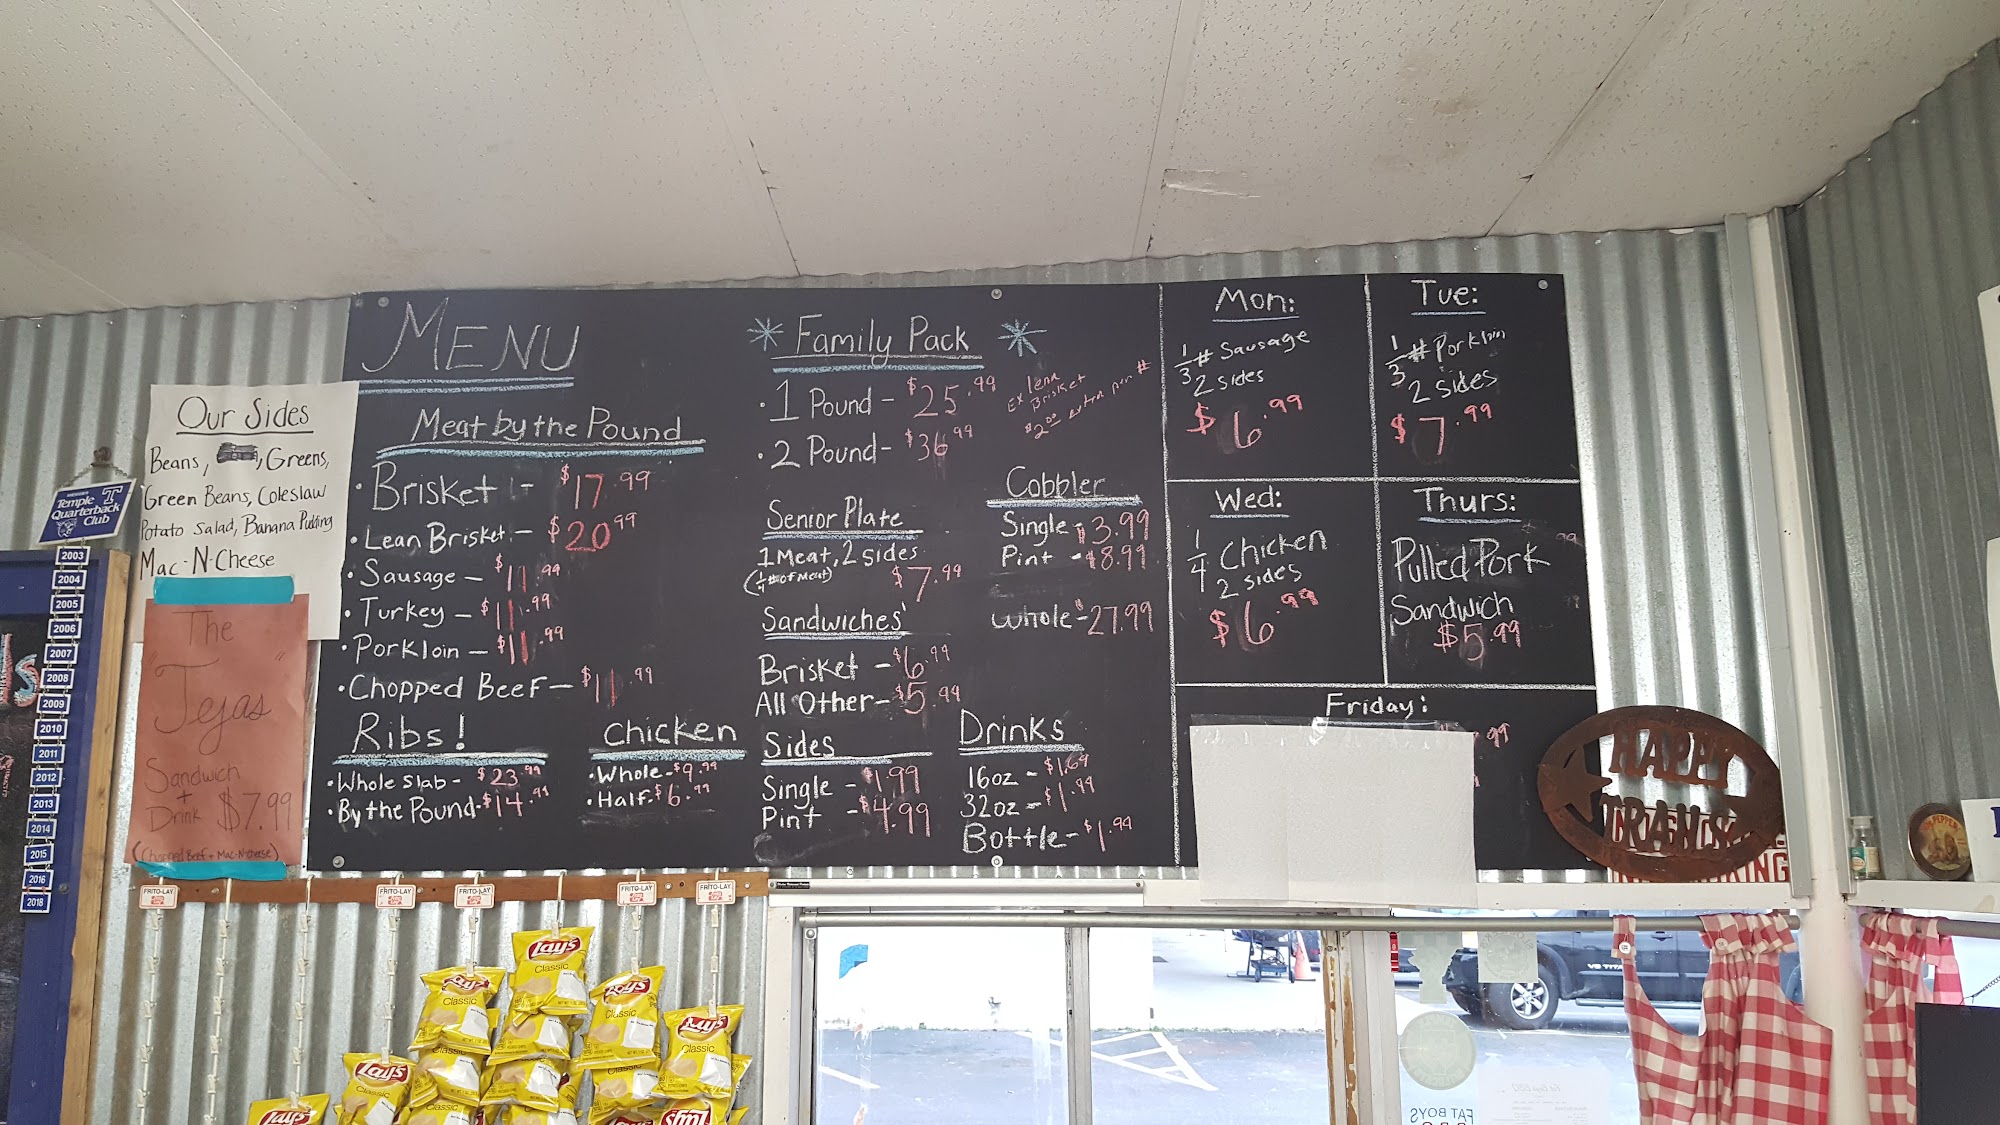 MENU
Meat by the Pound
• Brisket - $17.99
• Lean Brisket - $20.99
• Sausage - $11.99
• Turkey - $11.99
• Pork loin - $11.99
• Chopped Beef - $11.99
Ribs!
• Whole slab - $23.99
• By the Pound - $14.99
Chicken
• Whole - $9.99
• Half - $6.99
Family Pack
• 1 Pound - $25.99
• 2 Pound - $36.99
Brisket
$2.00 extra per #
Senior Plate
1 Meat, 2 sides
(1/4 # of meat) $7.99
Sandwiches
Brisket - $6.99
All Other - $5.99
Sides
Single - $1.99
Pint - $4.99
Cobbler
Single - $3.99
Pint - $8.99
Whole - $27.99
Drinks
16oz - $1.69
32oz - $1.99
Bottle - $1.99
Mon:
1/3 # Sausage
2 sides
$6.99
Tue:
1/3 # Pork loin
2 sides
$7.99
Wed:
1/4 Chicken
2 sides
$6.99
Thurs:
Pulled Pork
Sandwich
$5.99
Friday:
.99
Our Sides
Beans, Greens,
Green Beans, Coleslaw
Potato Salad, Banana Pudding
Mac-N-Cheese
The
"Tejas"
Sandwich
+
Drink $7.99
(Chopped Beef + Mac-N-Cheese)
Temple
Quarterback
Club
2003
2004
2005
2006
2007
2008
2009
2010
2011
2012
2013
2014
2015
2016
2018
FRITO-LAY
FRITO-LAY
FRITO-LAY
FRITO-LAY
FRITO-LAY
Lay's
Classic
Lay's
Classic
Lay's
Classic
Lay's
Classic
Lay's
Classic
Lay's
Lay's
HAPPY
TRAILS
KING
V8 TITAN
FAT BOYS